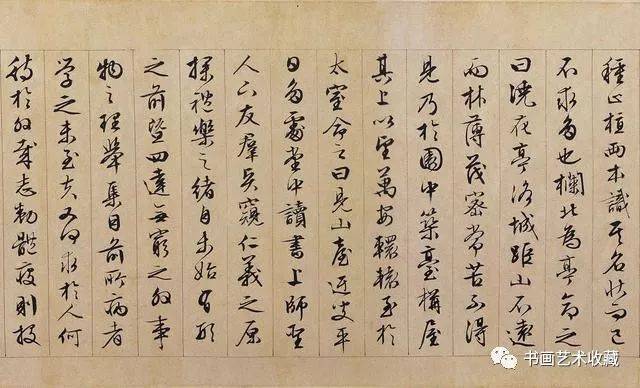 種止植兩本識其名狀而已
不求多也欄北為亭命之
曰澆花亭洛城距山不遠
而林薄茂密常苦不得
見乃於園中築臺構屋
其上以望萬安轘轅至於
太室命之曰見山臺迂叟平
日多處堂中讀書上師聖
人下友羣賢窺仁義之原
探禮樂之緒自未始有形
之前暨四達無窮之外事
物之理舉集目前所病者
学之未至夫又何求於人何
待於外哉志勌體疲則投
书画艺术收藏